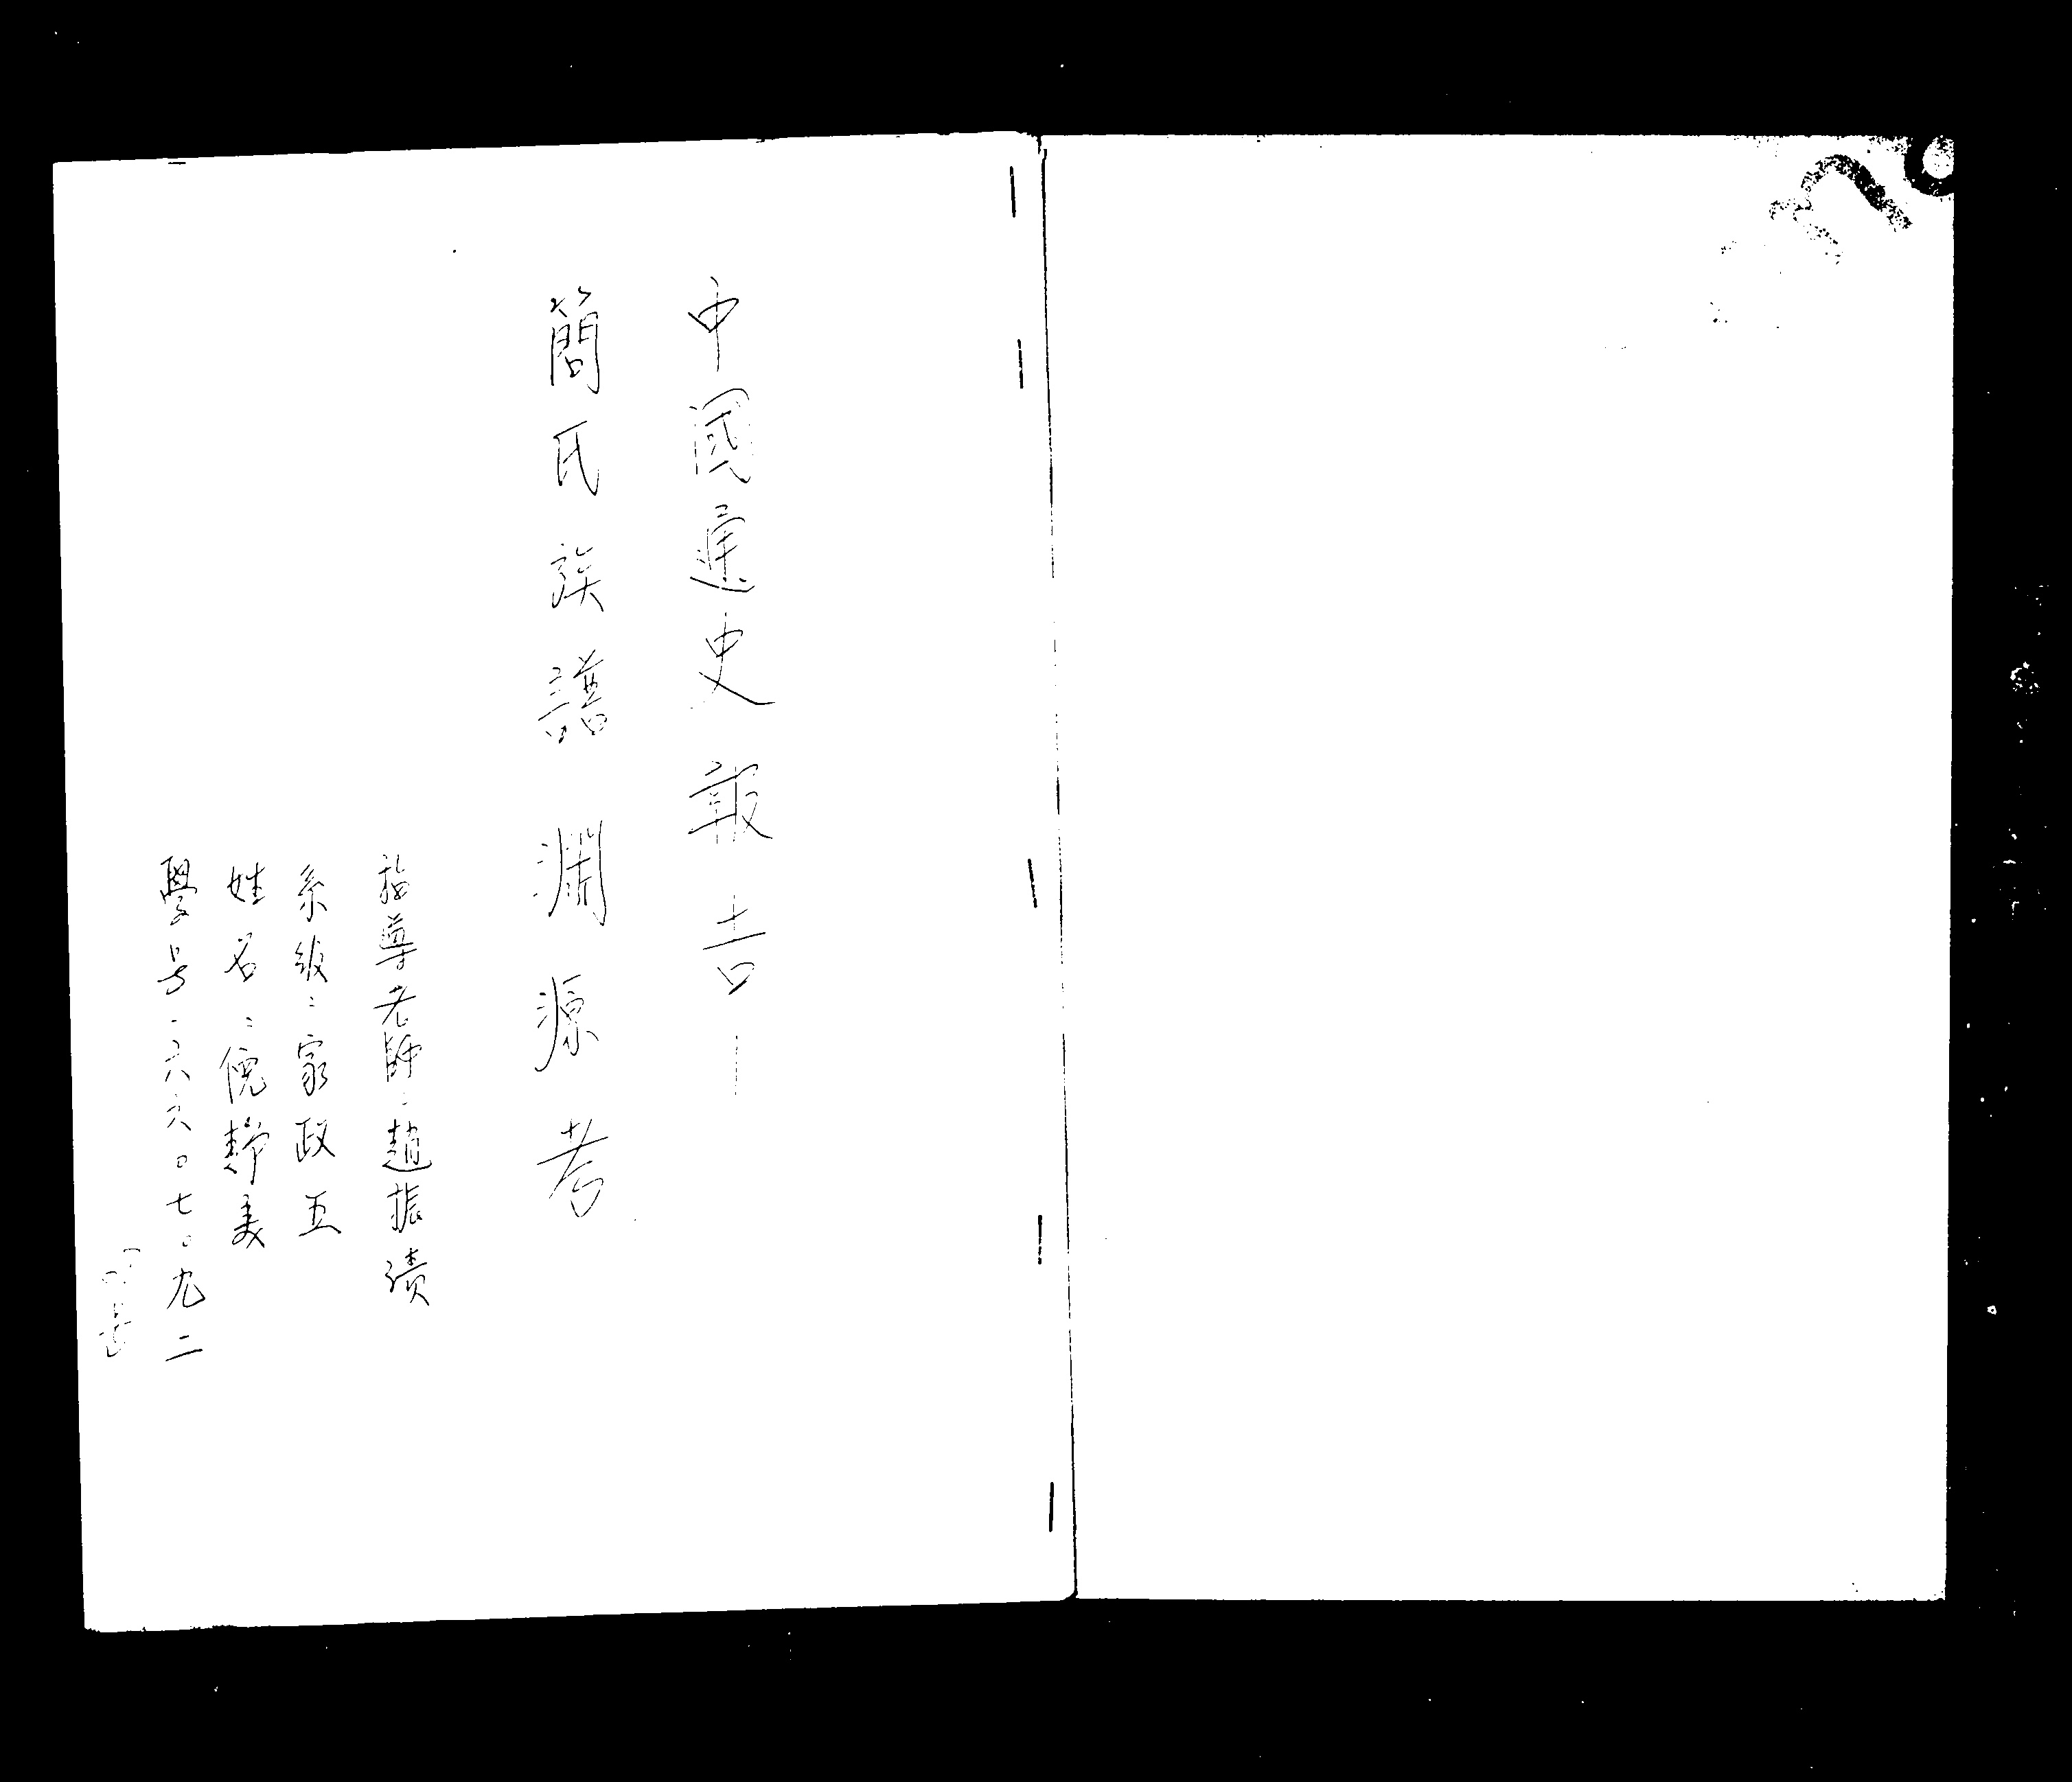 中國通史報告—
簡氏族譜淵源考
指導老師：趙振績
系級：家政五
姓名：倪靜美
學号：六六〇七〇九二